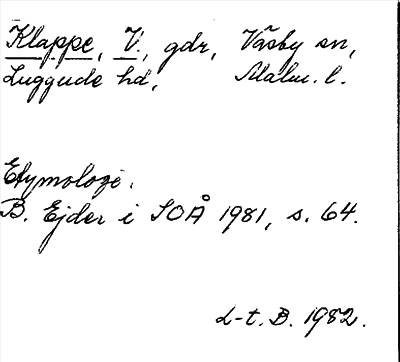 Klappe, V., gdr, Väsby sn,
Luggude hd, Malm. l.
Etymologi.
B. Ejder i SOÅ 1981, s. 64.
L-t. B. 1982.